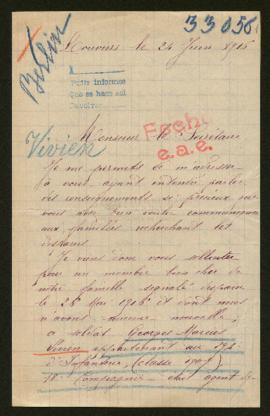 33056
Berlin
Louviers le 24 Juin 1915
Pedir informes
Que se han sol
Devolver
Monsieur le Secrétaire
Fecho
e.a.e.
Vivien
Je me permets de m'adresser
à vous, ayant entendu parler
des renseignements si précieux que
vous avez bien voulu communiquer
aux familles recherchant les
disparus
Je viens donc vous
pour un membre bien cher de
notre famille signalé disparu
le 28 Mai 1915 et dont nous
n'avons aucune nouvelle,
le soldat Georges Marcus
Vivien appartenant au
d'Infanterie (classe 1907)
Compagnie agent de